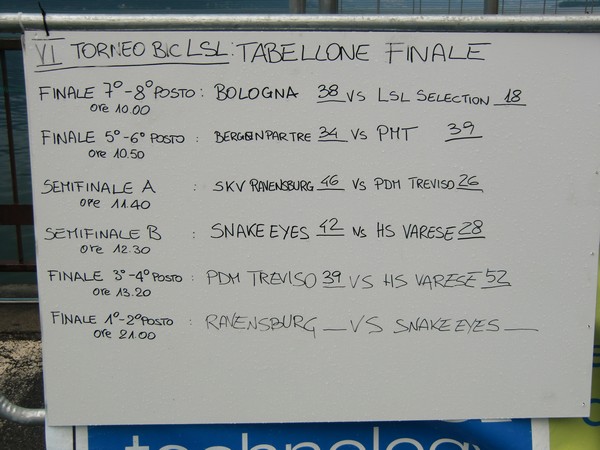 VI TORNEO BIC LSL: TABELLONE FINALE
FINALE 7°-8° POSTO: BOLOGNA 38 VS LSL SELECTION 18
ore 10.00
FINALE 5°-6° POSTO: 34 VS PMT 39
ore 10.50
SEMIFINALE A : SKV RAVENSBURG 46 VS PDM TREVISO 26
ore 11.40
SEMIFINALE B : SNAKE EYES 42 VS HS VARESE 28
ore 12.30
FINALE 3°-4° POSTO: PDM TREVISO 39 VS HS VARESE 52
ore 13.20
FINALE 1°-2° POSTO: RAVENSBURG __ VS SNAKE EYES __
ore 21.00